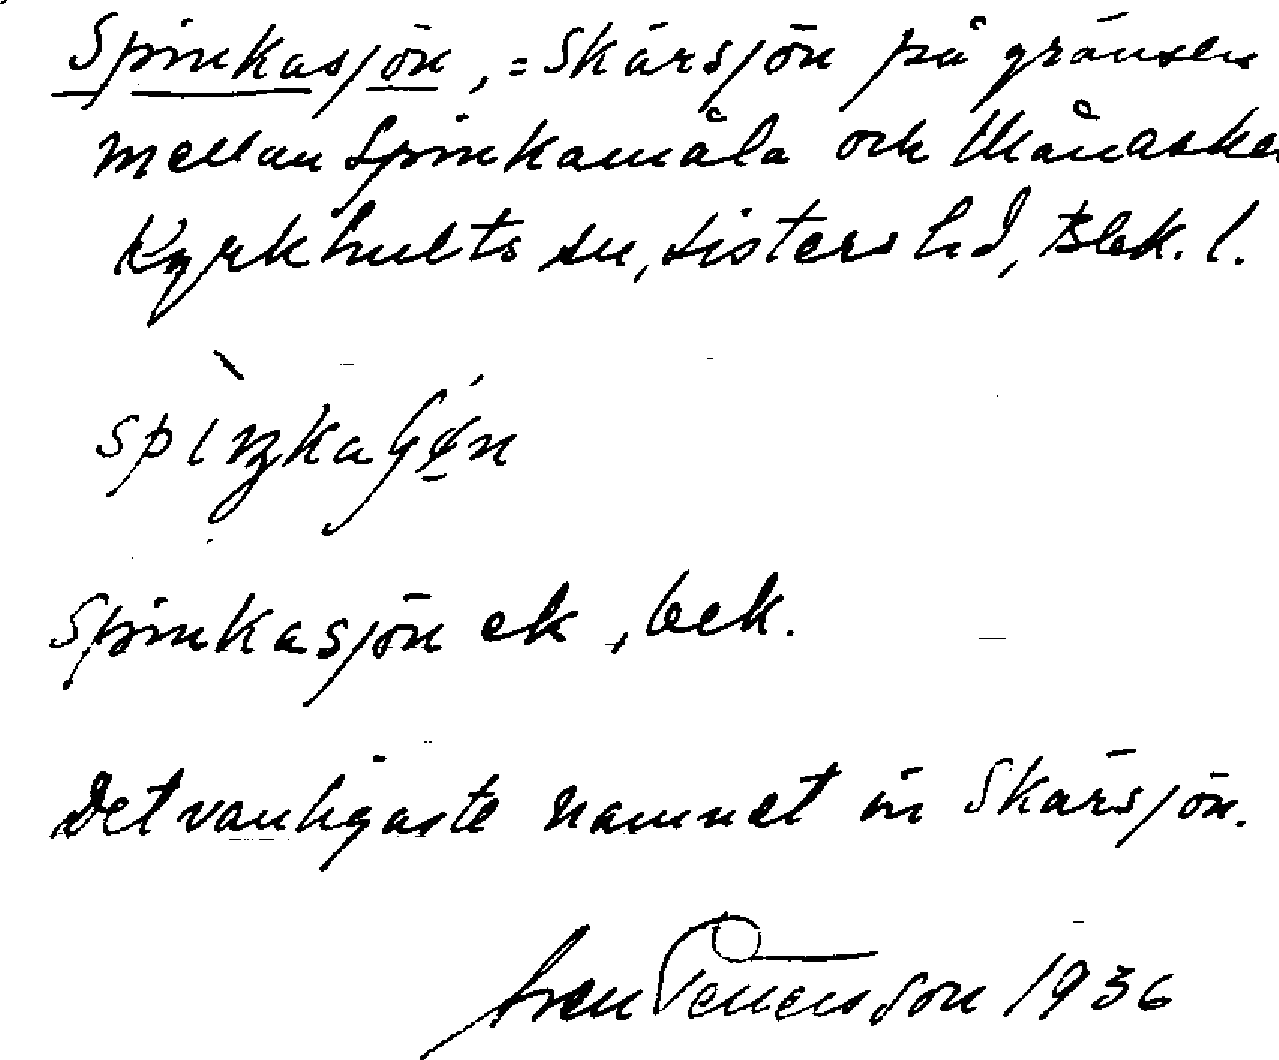 Spinkasjön, = Skärsjön på gränsen
mellan Spinkamåla och Månaske
Kyrkhults sn, Listers hd, Blek. l.
Spinkasjön ek, bek.
Det vanligaste namnet är Skärsjön.
Sven Pettersson 1936